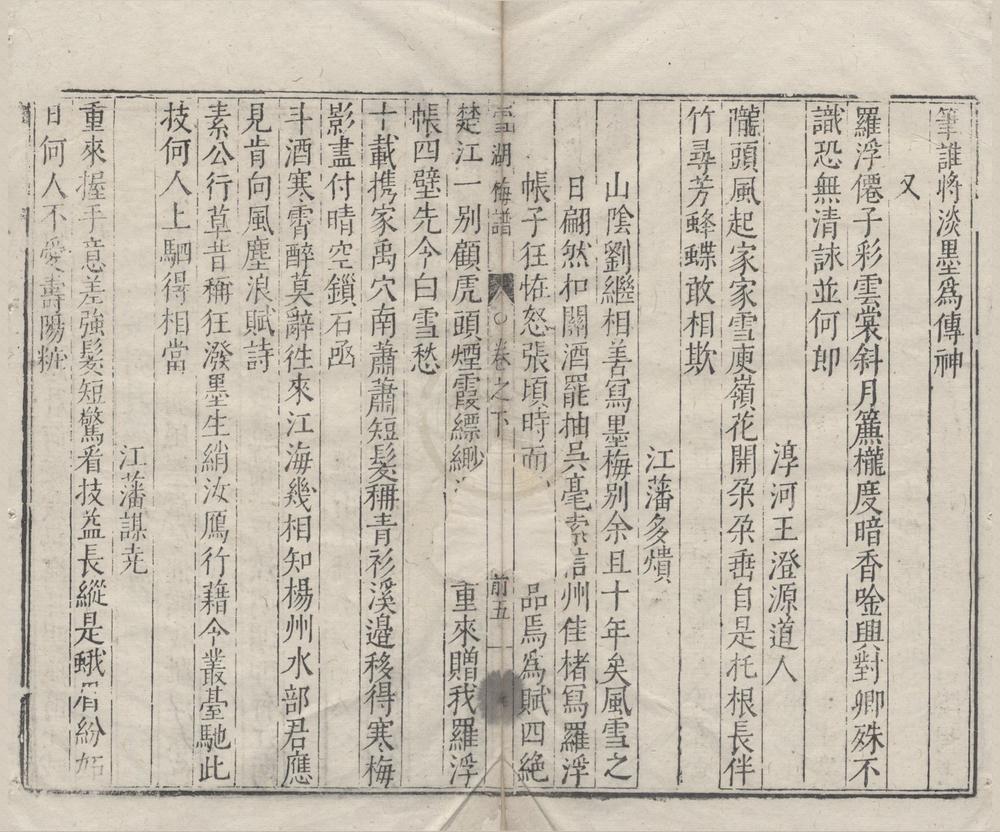 筆誰將淡墨爲傳神
又
羅浮僊子彩雲裳斜月簾櫳度暗香唫興對卿殊不
識恐無清詠並何郎
淳河王澄源道人
隴頭風起家家雪庾嶺花開朶朶垂自是托根長伴
竹尋芳蜂蝶敢相欺
江藩多熿
山隂劉繼相善冩墨梅別余且十年矣風雪之
日翩然扣關酒罷抽吳毫索信州佳楮冩羅浮
帳子狂恠怒張頃時而品焉爲賦四絶
雪湖梅譜 卷之下 前五
楚江一別顧虎頭煙霞縹緲重來贈我羅浮
帳四壁先今白雪愁
十載携家禹穴南蕭蕭短髪稱青衫溪邉移得寒梅
影盡付晴空鎖石函
斗酒寒霄醉莫辭徃來江海幾相知楊州水部君應
見肯向風塵浪賦詩
素公行草昔稱狂潑墨生綃汝鴈行藉今叢臺馳此
技何人上駟得相當
江藩謀㚖
重來握手意差強髪短驚看技益長縱是蛾眉紛如
日何人不愛壽陽粧